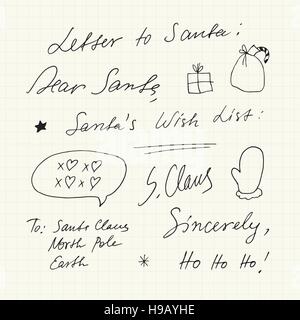 Letter to Santa:
Dear Santa,
★ Santa's Wish List:
x♡x♡
♡x♡x
S. Claus
To: Santa Claus
North Pole
Earth
Sincerely,
* Ho Ho Ho!
alamy stock photo